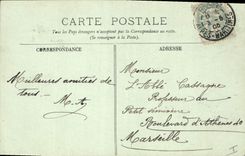 CARTE POSTALE
Tous les Pays étrangers n'acceptent pas la Correspondance au recto.
(Se renseigner à la Poste)
CORRESPONDANCE
ADRESSE
Meilleures amitiés de
tous.
M.A
Monsieur
L'Abbé Cassagne
Professeur au
Petit Séminaire
Boulevard d'Athènes
Marseille